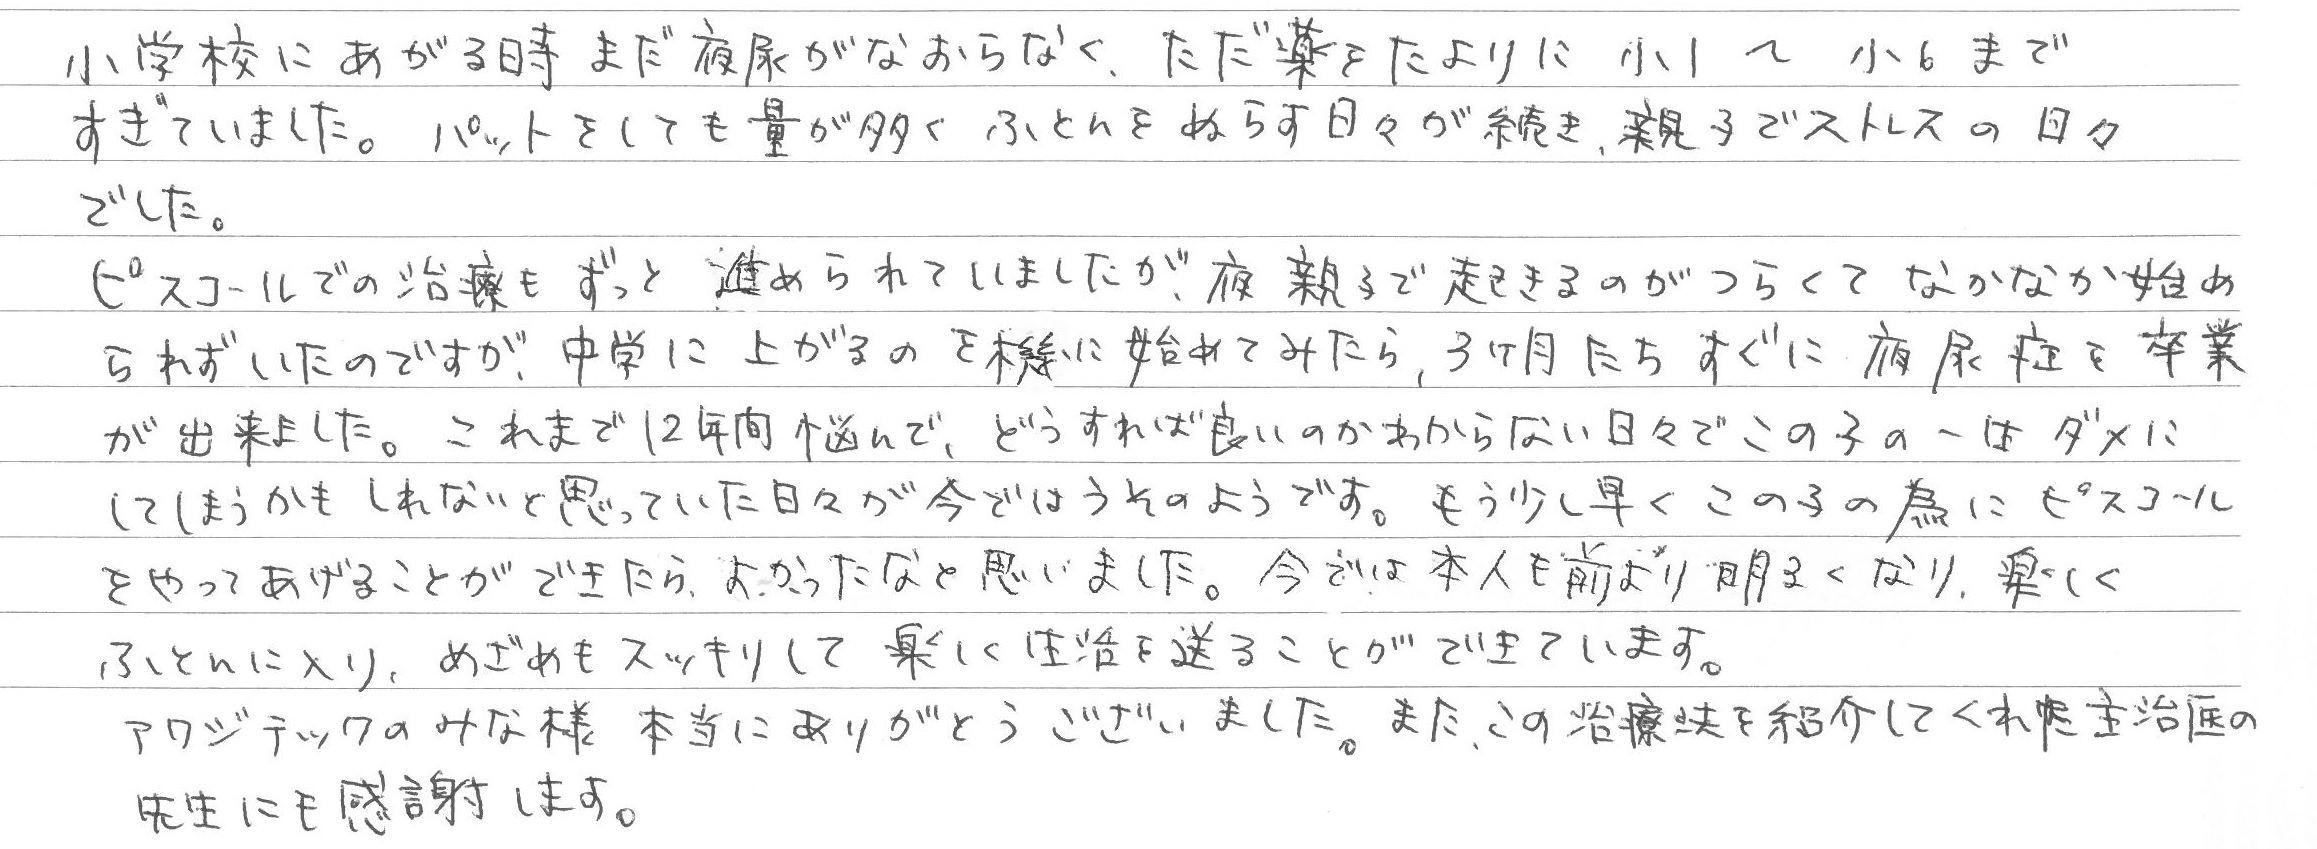 小学校にあがる時まだ夜尿がなおらなく、ただ薬をたよりに小1〜小6まで
すぎていました。パットをしても量が多くふとんをぬらす日々が続き、親子でストレスの日々
でした。
ピスコールでの治療もずっと進められていましたが、夜親子で起きるのがつらくてなかなか始め
られずいたのですが、中学に上がるのを機に始めてみたら、3ヶ月たちすぐに夜尿症を卒業
が出来ました。これまで12年間悩んで、どうすれば良いのかわからない日々でこの子の心はダメに
してしまうかもしれないと思っていた日々が今ではうそのようです。もう少し早くこの子の為にピスコール
をやってあげることができたら、よかったなと思いました。今では本人も前より明るくなり、楽しく
ふとんに入り、めざめもスッキリして楽しく生活を送ることができています。
アワジテックのみな様本当にありがとうございました。また、この治療法を紹介してくれた主治医の
先生にも感謝します。